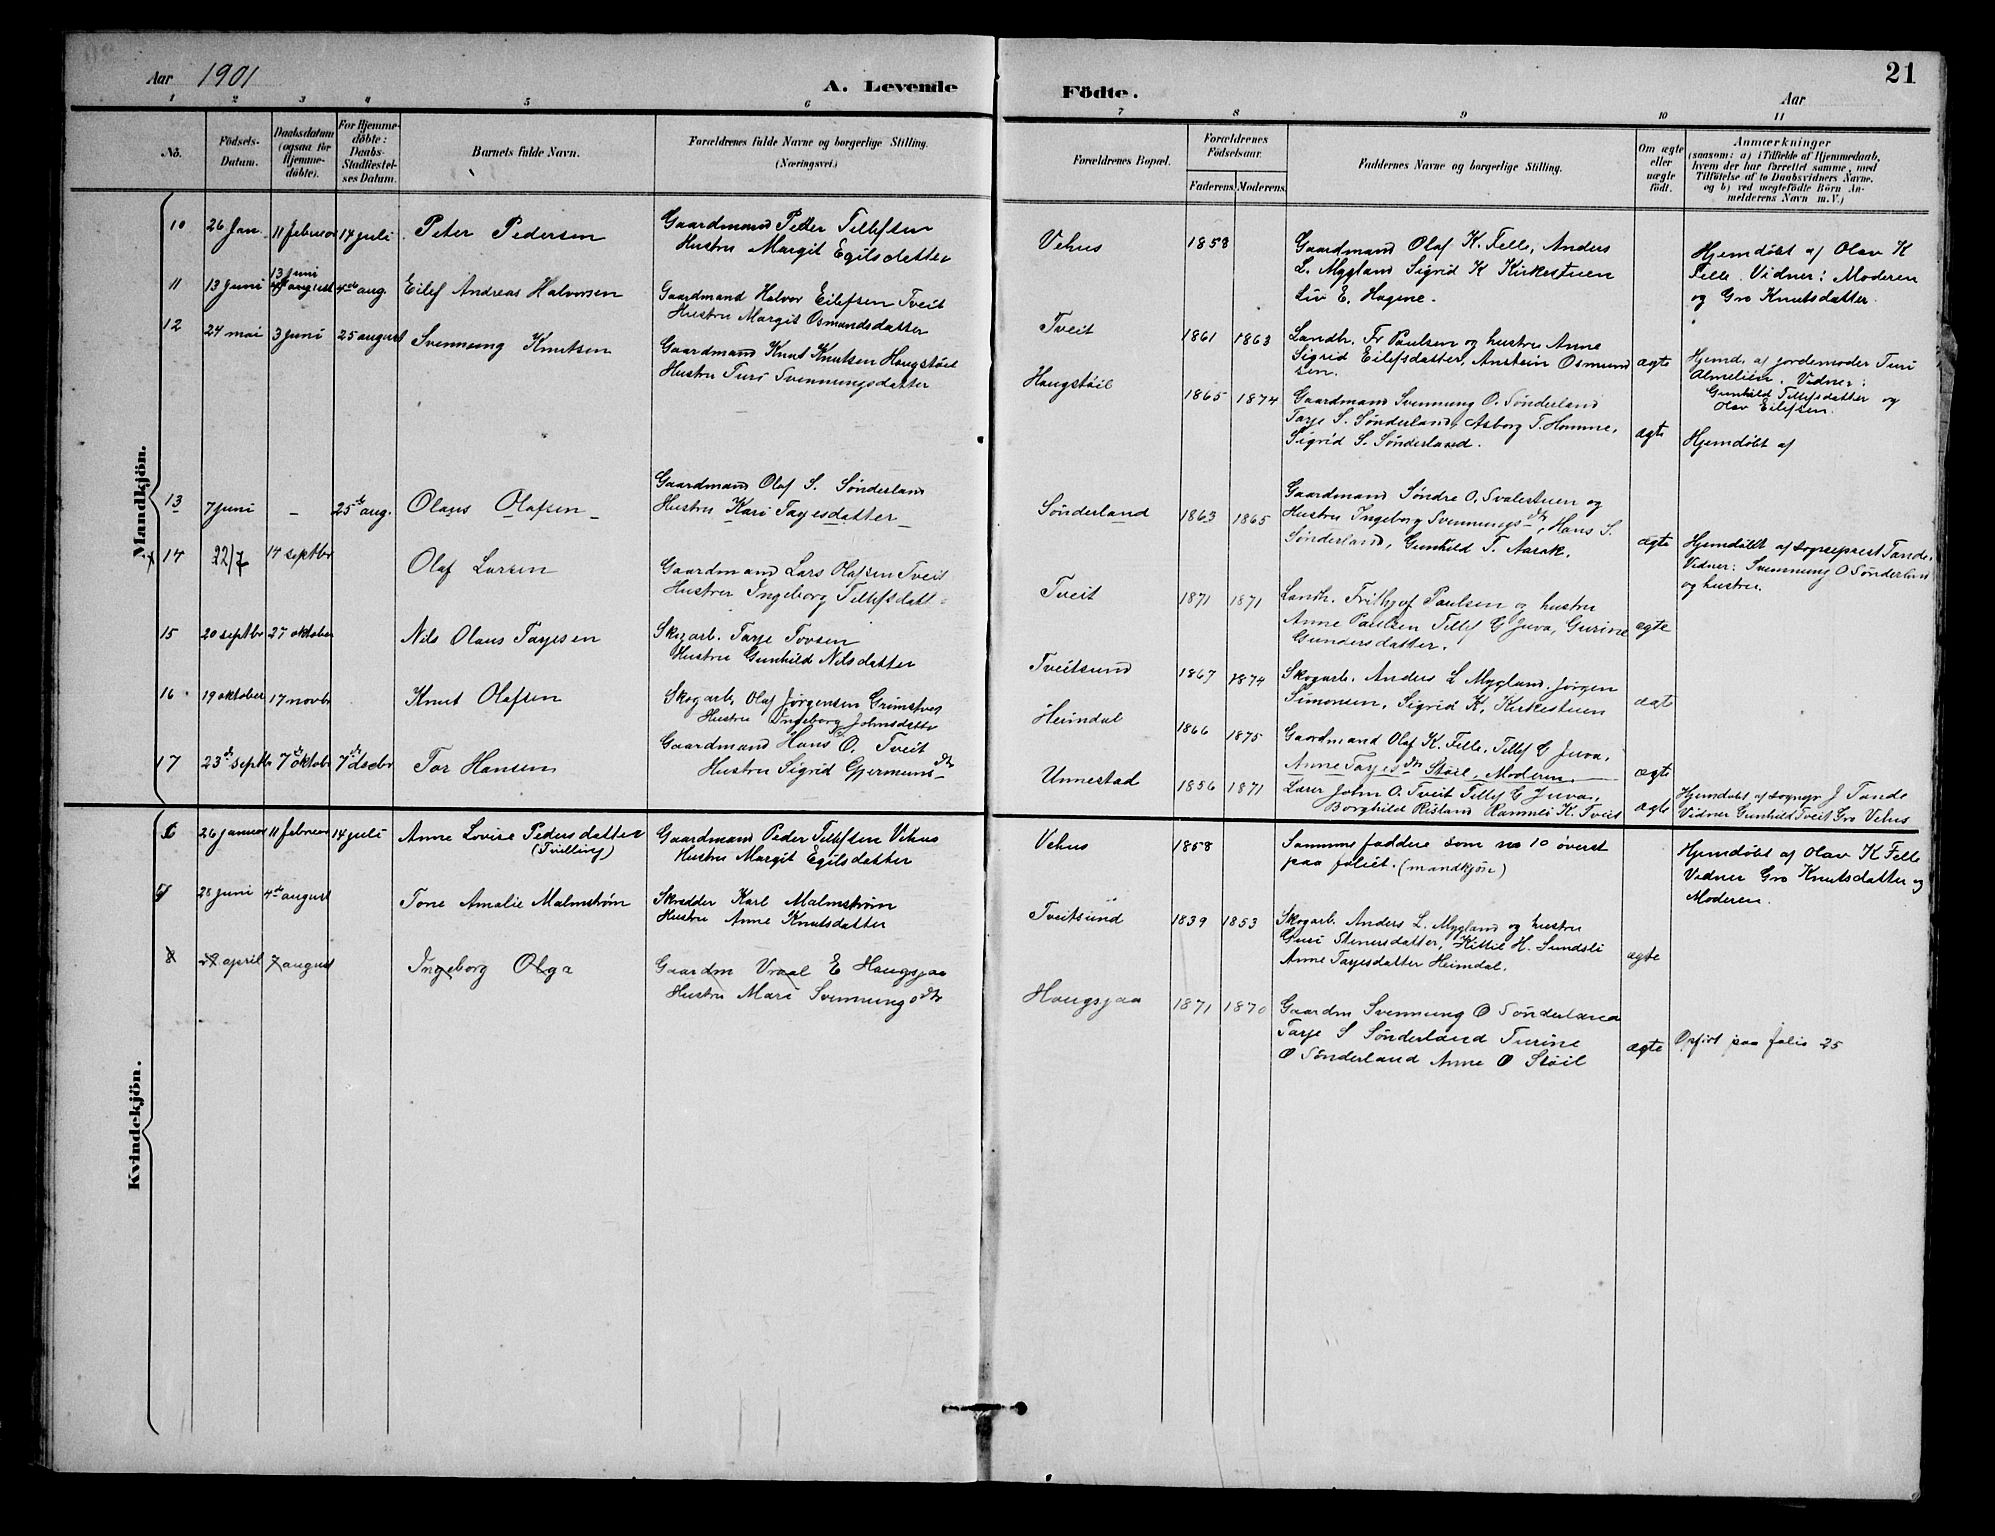 Aar 1901
A. Levende Födte.
Aar
21
1 2 3 4 5 6 7 8 9 10 11
No.
Födsels-Datum.
Daabsdatum (ogsaa for Hjemmedöbte).
For Hjemmedöbte: Daabs-Stadfæstelses Datum.
Barnets fulde Navn.
Forældrenes fulde Navne og borgerlige Stilling. (Næringsvei.)
Forældrenes Bopæl.
Forældrenes Födselsaar.
Faderens. Moderens.
Faddernes Navne og borgerlige Stilling.
Om ægte eller uægte födt.
Anmærkninger
(saasom: a) i Tilfælde af Hjemmedaab, hvem der har forrettet samme, med Tilföielse af to Daabsvidners Navne. og b) ved uægtefödte Börn Anmelderens Navn m.V.)
Mandkjön.
10 26 Jan. 11 februar 14 juli Peter Pedersen
Gaardmand Peter Tellefsen
Hustru Margit Egilsdatter
Vehus 1858
Gaardmand Olaf K. Felle, Anders
L. Mygland Sigrid K Kirkestuen
Liv E. Hagene.
Hjemdøbt af Olav K
Felle. Vidner: Moderen
og Gro Knutsdatter.
11 13 juni 13 juni august 4de aug. Eilef Andreas Halvorsen
Gaardmand Halvor Eilefsen Tveit
Hustru Margit Osmundsdatter
Tveit 1861 1863
Landh. Fr Paulsen og hustru Anne
Sigrid Eilefsdatter, Anstein Osmund
sen. ægte
Hjemd. af jordemoder Turi
Almelien. Vidner:
Gunhild Tellefsdatter og
Olav Eilefsen.
12 24 mai 3 juni 25 august Svennung Knutsen
Gaardmand Knut Knutsen Haugstöil
Hustru Turi Svennungsdatter
Haugstöil 1865 1874
Gaardmand Svennung O. Sönderland
Tarje S. Sönderland, Asborg T. Homme,
Sigrid S. Sönderland. ægte
Hjemdöbt af
13 7 juni - 25 aug. Olaus Olafsen
Gaardmand Olaf S. Sönderland
Hustru Kari Tarjesdatter
Sönderland 1863 1865
Gaardmand Söndre O. Svalestuen og
Hustru Ingeborg Svennungsdtr, Hans S.
Sönderland, Gunhild T. Aasak. ægte
Hjemdöbt af sogneprest Tande.
Vidner: Svennung O Sönderland
og hustru.
14 22/7 14 septbr Olaf Larsen
Gaardmand Lars Olafsen Tveit
Hustru Ingeborg Tellefsdatt
Tveit 1871 1871
Landh. Frithjof Paulsen og hustru
Anne Paulsen Tellef G Juva, Gurine
Gundersdatter. ægte
15 20 septbr 27 oktober Nils Olaus Tarjesen
Skogarb. Tarje Tovsen
Hustru Gunhild Nilsdatter
Tveitsund 1867 1874
Skogarb. Anders L Mygland, Jørgen
Simonsen, Sigrid K. Kirkestuen ægte
16 19 oktober 17 novbr Knut Olafsen
Skogarb. Olaf Jørgensen
Hustru Ingeborg Johnsdatter
Heimdal 1866 1875
Gaardmand Olaf K. Felle, Tellef G Juva,
Anne Tarjesdtr Stöil, Moderen. ægte
17 23de septbr 7de oktobr 7de decbr Tor Hansen
Gaardmand Hans O. Tveit
Hustru Sigrid Gjermunsdtr
Unnestad 1856 1871
Lærer John O. Tveit Tellef G Juva,
Borghild Risland Rammei K. Tveit ægte
Hjemdöbt af sognepr J Tande
Vidner Gunhild Tveit Gro Vehus
Kvindekjön.
6 26 januar 11 februar 14 juli Anne Lovise Pedersdatter
(Tvilling)
Gaardmand Peder Tellefsen Vehus
Hustru Margit Egilsdatter
Vehus 1858
Samme faddere som no 10 överst
paa foliet. (mandkjön)
Hjemdøbt af Olav K Felle
Vidner Gro Knutsdatter og
Moderen.
28 juni 4de august Tone Amalie Malmstrøm
Skredder Karl Malmstrøm
Hustru Anne Knutsdatter
Tveitsund 1839 1853
Skogarb. Anders L. Mygland og hustru
Guri Stenersdatter, Kittil H. Sundsli
Anne Tarjesdatter Heimdal. ægte
8 29 april 7 august Ingeborg Olga
Gaardm Vraal E Haugsjaa
Hustru Mari Svennungsdtr
Haugsjaa 1871 1870
Gaardm Svennung O Sönderland
Tarje S Sönderland Turine
O Sönderland Anne O Stöil ægte
Opfört paa folio 25